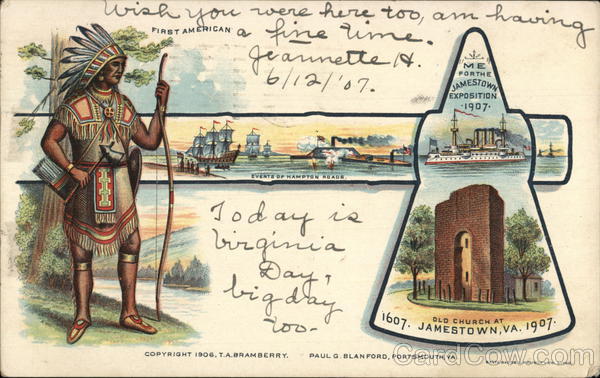 Wish you were here too, am having
FIRST AMERICAN
a fine time.
Jeannette H.
6/12/'07.
ME
FOR THE
JAMESTOWN
EXPOSITION
1907.
EVENTS OF HAMPTON ROADS.
Today is
Virginia
Day,
big day
too-
OLD CHURCH AT
1607. JAMESTOWN, VA. 1907.
COPYRIGHT 1906, T.A. BRAMBERRY. PAUL G. BLANFORD, PORTSMOUTH, VA.
CardCow.com